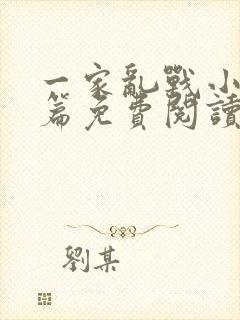 一家亂戰小
篇免費閱讀
劉某